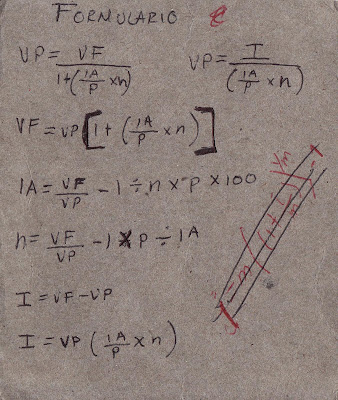 FORMULARIO
VP = VF / 1+(IA/P × n)    VP = I / (IA/P × n)
VF = VP [1 + (IA/P × n)]
IA = VF/VP - 1 ÷ n × P × 100
n = VF/VP - 1 × P ÷ IA
I = VF - VP
I = VP (IA/P × n)